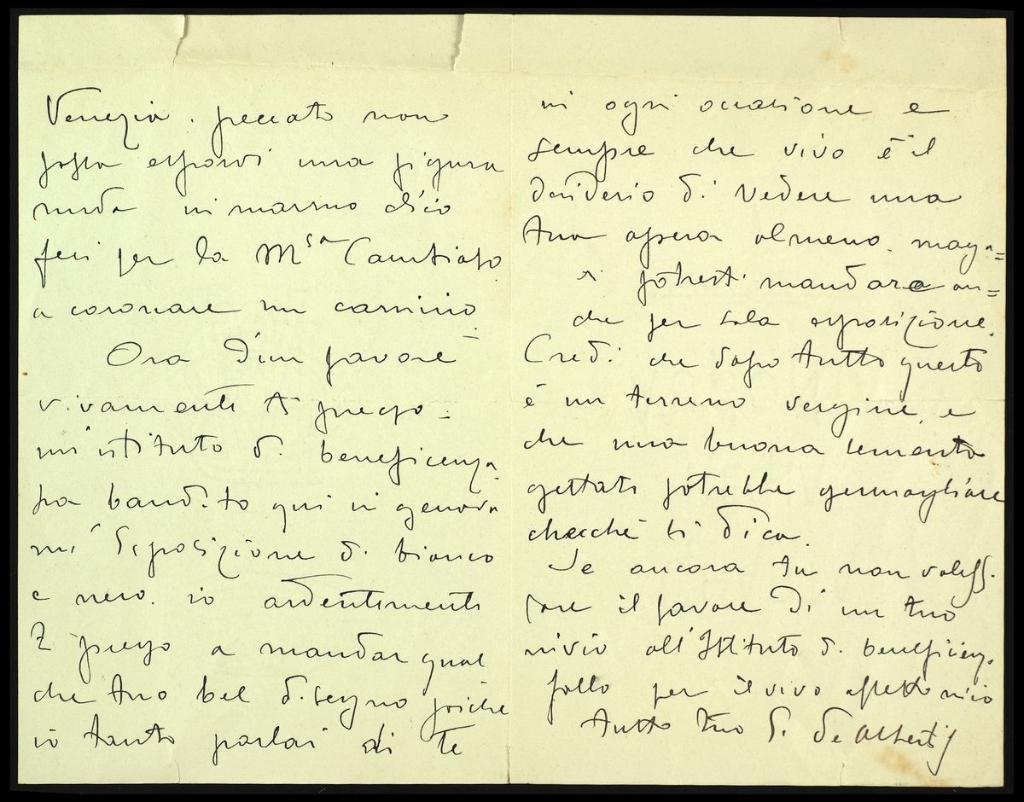 Venezia. peccato non
possa esporvi una figura
nuda in marmo ch'io
feci per la M.sa
a coronare un camino
Ora d'un favore
vivamente ti prego:
un istituto di beneficenza
ha bandito qui in genova
un' Esposizione di bianco
e nero. io ardentemente
ti prego a mandar qual
che tuo bel disegno poiché
io tanto parlai di te
in ogni occasione e
sempre che vivo è il
desiderio di vedere una
tua opera almeno. maga=
ri potresti mandare an=
che per sola esposizione.
Credi che dopo tutto questo
è un terreno vergine e
che una buona semente
gettata potrebbe germogliare
checché ti dica.
Se ancora tu non volessi
fare il favore di un tuo
invio all'Istituto di beneficenza
fallo per il vivo affetto mio
tutto tuo S. De Albertis